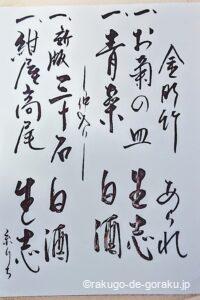 金明竹 あられ
一、お菊の皿 生志
一、青菜 白酒
―仲入り―
一、新版三十石 白酒
一、紺屋高尾 生志
©rakugo-de-goraku.jp